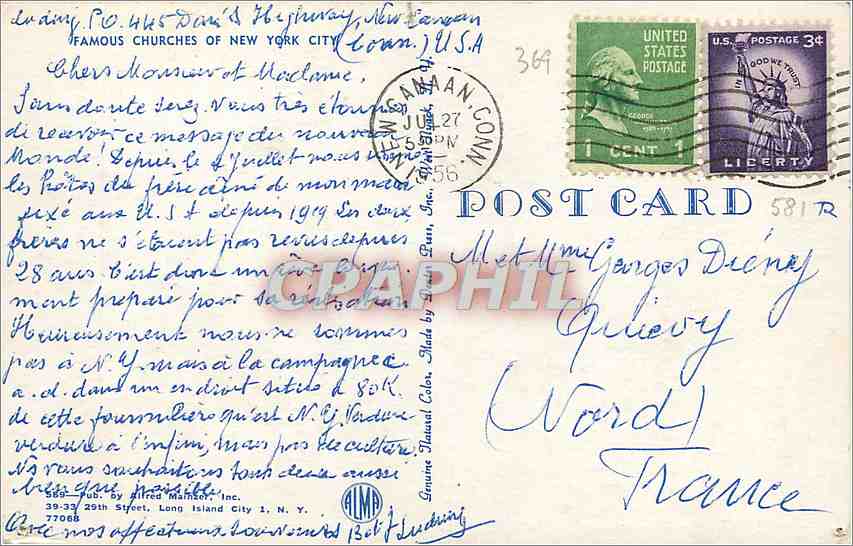 Luding. P.O. 445 Dan's Highway, New Canaan
FAMOUS CHURCHES OF NEW YORK CITY (Conn.) U.S.A
Chers Monsieur et Madame,
Sans doute serez-vous très étonnés
de recevoir ce message du nouveau
Monde! Depuis le 2 juillet nous sommes
les hôtes du frère aîné de mon mari
fixé aux U.S.A depuis 1919 Les deux
frères ne s'étaient pas revus depuis
28 ans. C'est donc un rêve longue-
ment préparé pour sa réalisation
Heureusement nous ne sommes
pas à N.Y. mais à la campagne c
a.d. dans un endroit situé à 80K.
de cette fourmilière qu'est N.Y. Verdure
verdure à l'infini, mais pas de culture.
Ns vous souhaitons tous deux aussi
bien que possible
569—Pub. by Alfred Mainzer, Inc.
39-33 29th Street, Long Island City 1, N. Y.
77068
Avec nos affectueux souvenirs B et J Luding
ALMA
Genuine Natural Color, Made by Dexter Press, Inc., West Nyack, N. Y.
369
NEW CANAAN, CONN.
JUL 27
5 30 PM
1956
UNITED
STATES
POSTAGE
GEORGE
1 CENT 1
U.S. POSTAGE 3¢
IN GOD WE TRUST
LIBERTY
POST CARD
581 R
M et Mme Georges Diény
Quiévy
(Nord)
France
CPAPHIL